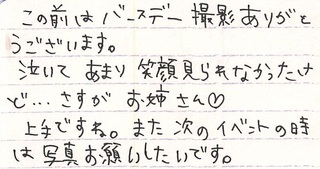 この前は バースデー 撮影ありがと
うございます。
泣いて あまり 笑顔見られなかったけ
ど… さすが お姉さん♡
上手ですね。また 次の イベントの時
は 写真お願いしたいです。